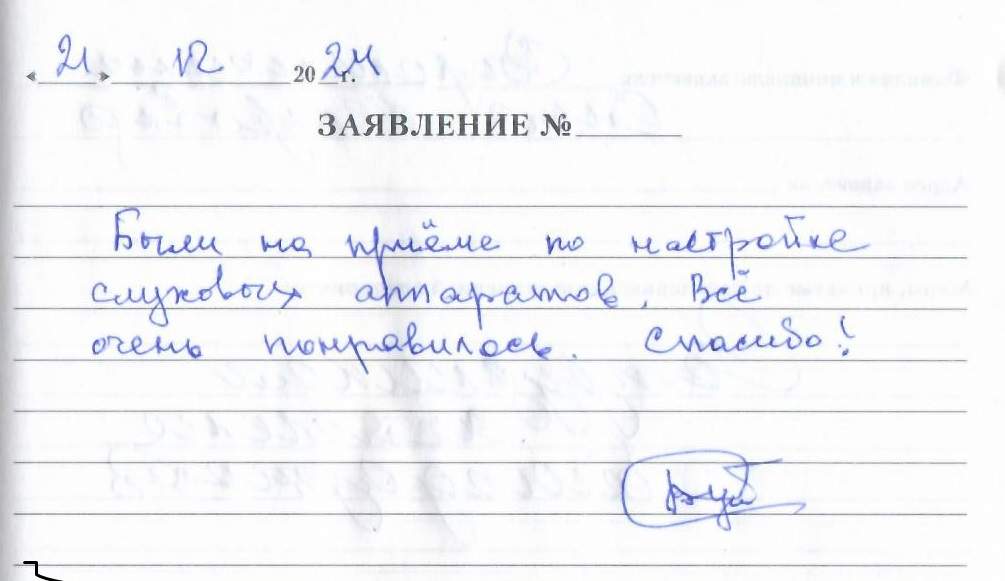 « 21 » 12 2024 г.
ЗАЯВЛЕНИЕ №
Были на приёме по настройке
слуховых аппаратов. Всё
очень понравилось. Спасибо!